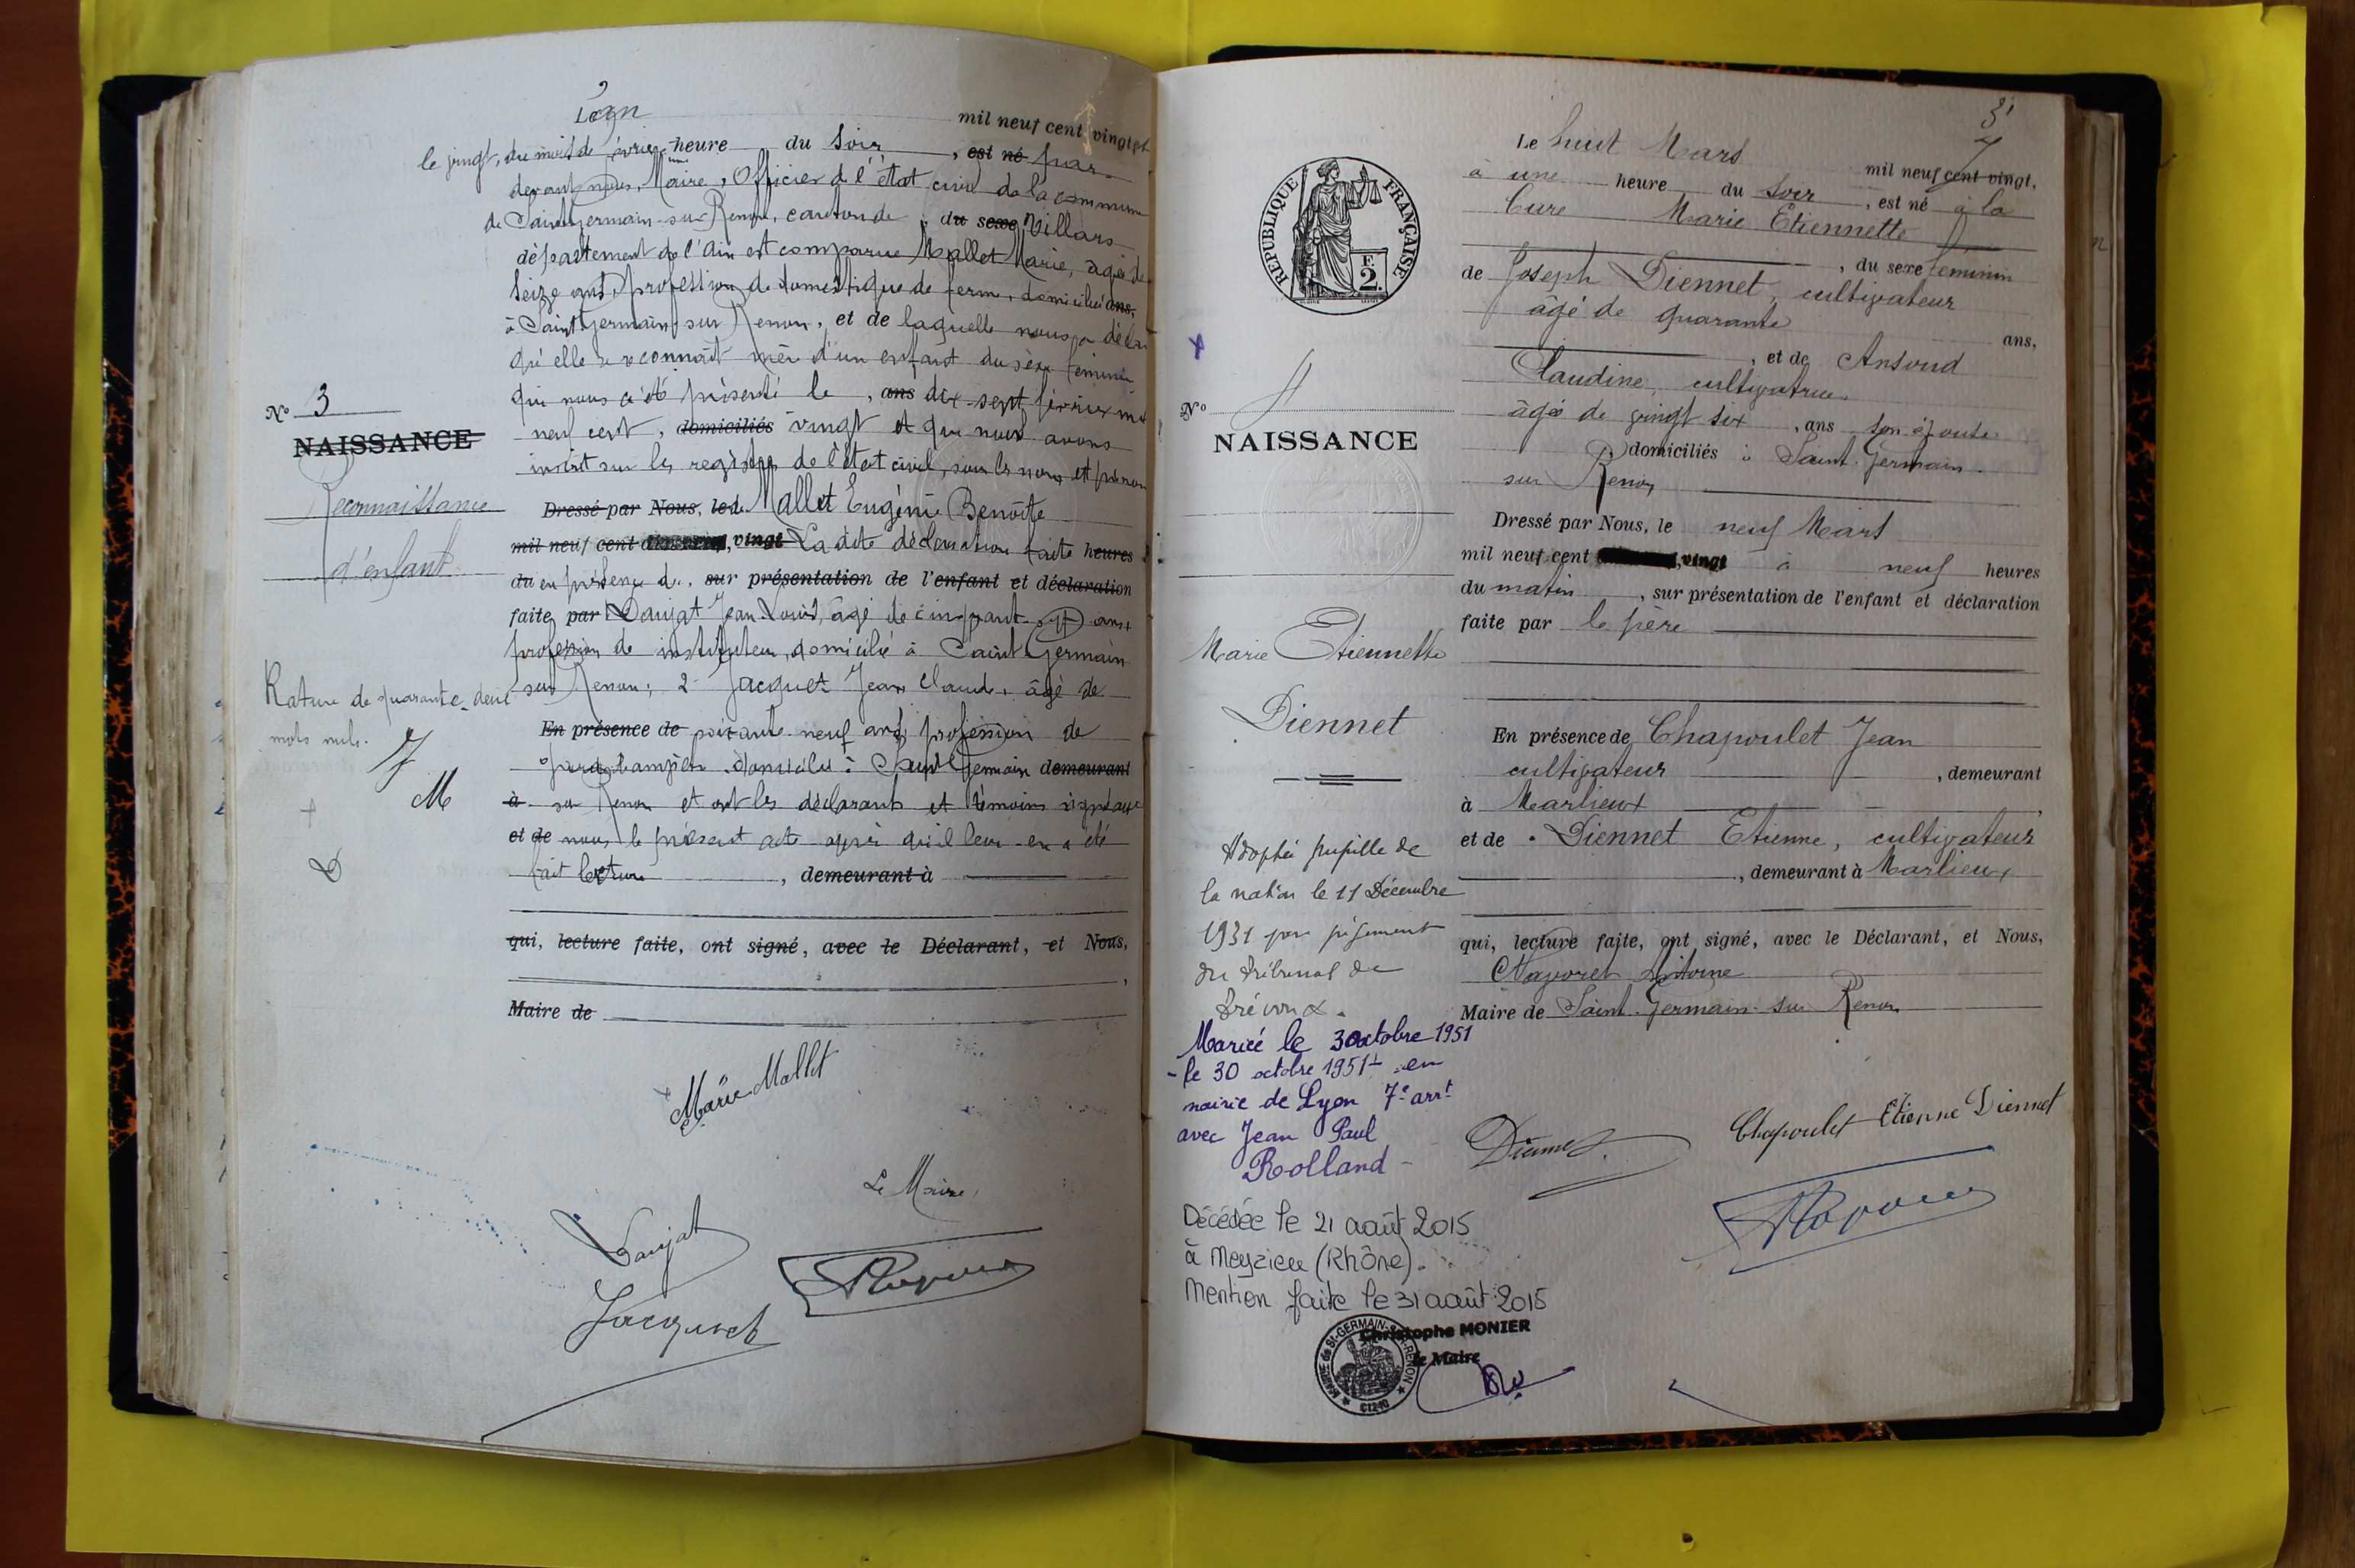 L'an mil neuf cent vingt
le vingt, du mois de février heure du soir, est né par
devant nous, Maire, Officier de l'état civil de la commune
de Saint Germain sur Renon, canton de, du sexe Villars
département de l'Ain est comparue Mallet Marie, âgée de
seize ans, profession de domestique de ferme, domiciliée ans,
à Saint Germain sur Renon, et de laquelle nous a décla
qu'elle se reconnaît mère d'un enfant du sexe féminin
qui nous a été présenté le, ans dix-sept février mil
neuf cent, domiciliés vingt et que nous avons
inscrit sur les registres de l'état civil, sous les noms et prénoms
Dressé par Nous, le de Mallet Eugénie Benoîte
mil neuf cent, vingt La dite déclaration faite heures
du en présence de, sur présentation de l'enfant et déclaration
faite par Daujat Jean Louis, âgé de cinquante ans,
profession de instituteur, domicilié à Saint Germain
sur Renon; 2 Jacquet Jean Claude, âgé de
En présence de soixante neuf ans, profession de
domicilié à Saint Germain demeurant
à sur Renon et ont les déclarants et témoins signé avec
et de nous le présent acte après qu'il leur en a été
fait lecture, demeurant à
qui, lecture faite, ont signé, avec le Déclarant, et Nous,
Maire de
N° 3
NAISSANCE
Reconnaissance
d'enfant
Rature de quarante-deux
mots nuls.
M
Marie Mallet
Le Maire,
Daujat
Jacquet
RÉPUBLIQUE FRANÇAISE
F.
2.
N° 4
NAISSANCE
Marie Etiennette
Diennet
Adoptée pupille de
la nation le 11 Décembre
1931 par jugement
du tribunal de
Trévoux.
Mariée le 30 octobre 1951
- le 30 octobre 1951 - en
mairie de Lyon 7e arrt
avec Jean Paul
Rolland -
Décédée le 21 août 2015
à Meyzieu (Rhône).
Mention faite le 31 août 2015
Christophe MONIER
le Maire
MAIRIE de St-GERMAIN-SUR-RENON
Le huit Mars mil neuf cent vingt,
à une heure du soir, est né à la
Cure Marie Etiennette
, du sexe féminin
de Joseph Diennet, cultivateur
âgé de quarante ans,
, et de Ansoud
Claudine, cultivatrice
âgée de vingt six, ans son épouse
domiciliés à Saint Germain
sur Renon
Dressé par Nous, le neuf Mars
mil neuf cent, vingt à neuf heures
du matin, sur présentation de l'enfant et déclaration
faite par le père
En présence de Chapoulet Jean
cultivateur, demeurant
à Marlieux
et de Diennet Etienne, cultivateur
, demeurant à Marlieux
qui, lecture faite, ont signé, avec le Déclarant, et Nous,
Antoine
Maire de Saint Germain sur Renon
Diennet
Chapoulet Etienne Diennet